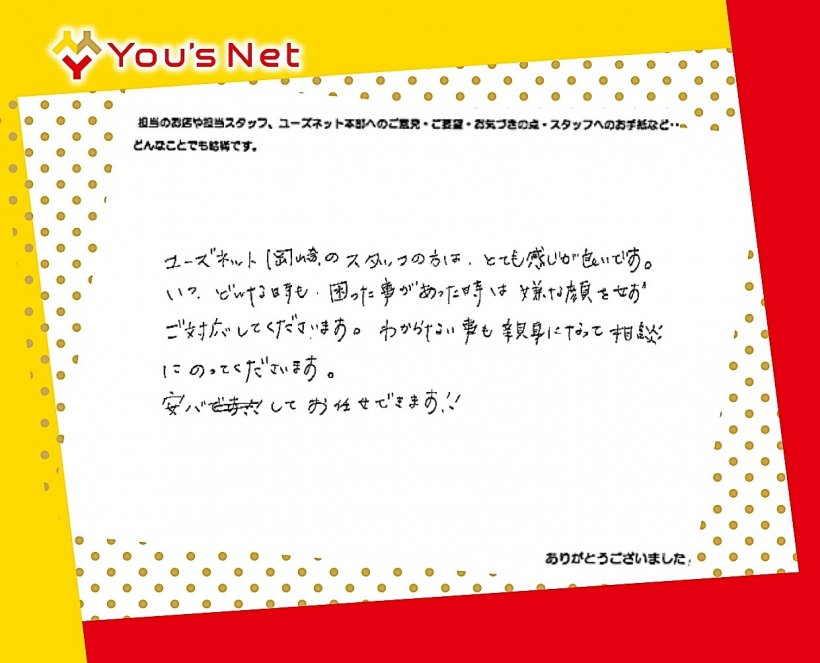 You's Net
担当のお店や担当スタッフ、ユーズネット本部へのご意見・ご要望・お気づきの点・スタッフへのお手紙など・・
どんなことでも結構です。
ユーズネット岡崎のスタッフの方は、とても感じが良いです。
いつ、どんな時も、困った事があった時は嫌な顔をせず
ご対応してくださいます。わからない事も親身になって相談
にのってくださいます。
安心してお任せできます!!
ありがとうございました